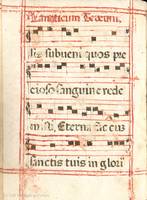 lis subueni quos pre
cioso sanguine rede
misti, Eterna fac cũ
sanctis tuis in glori